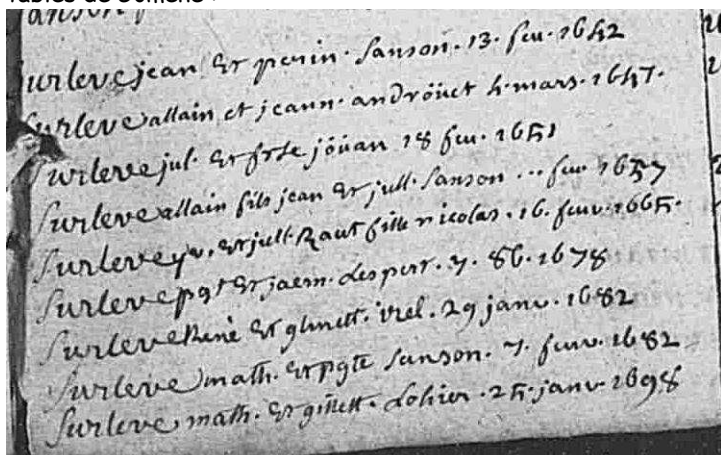 Tables de
Surleve jean et perin. Sanson. 13. feu. 1642
Surleve allain et jeann. androüet 4. mars. 1647.
Surleve jul. et frse joüan 18 feu. 1651
Surleve allain fils jean et jull. Sanson ... feu 1657
Surleve yv. et jull. Raut fille nicolas. 16. feuv. 1665.
Surleve pgt et jacm. Lespert. 7. 8b. 1678
Surleve René et glmett. viel. 29 janv. 1682
Surleve math. et pgte Sanson. 7. feuv. 1682
Surleve math. et gillett. Lohier. 25. janv. 1698